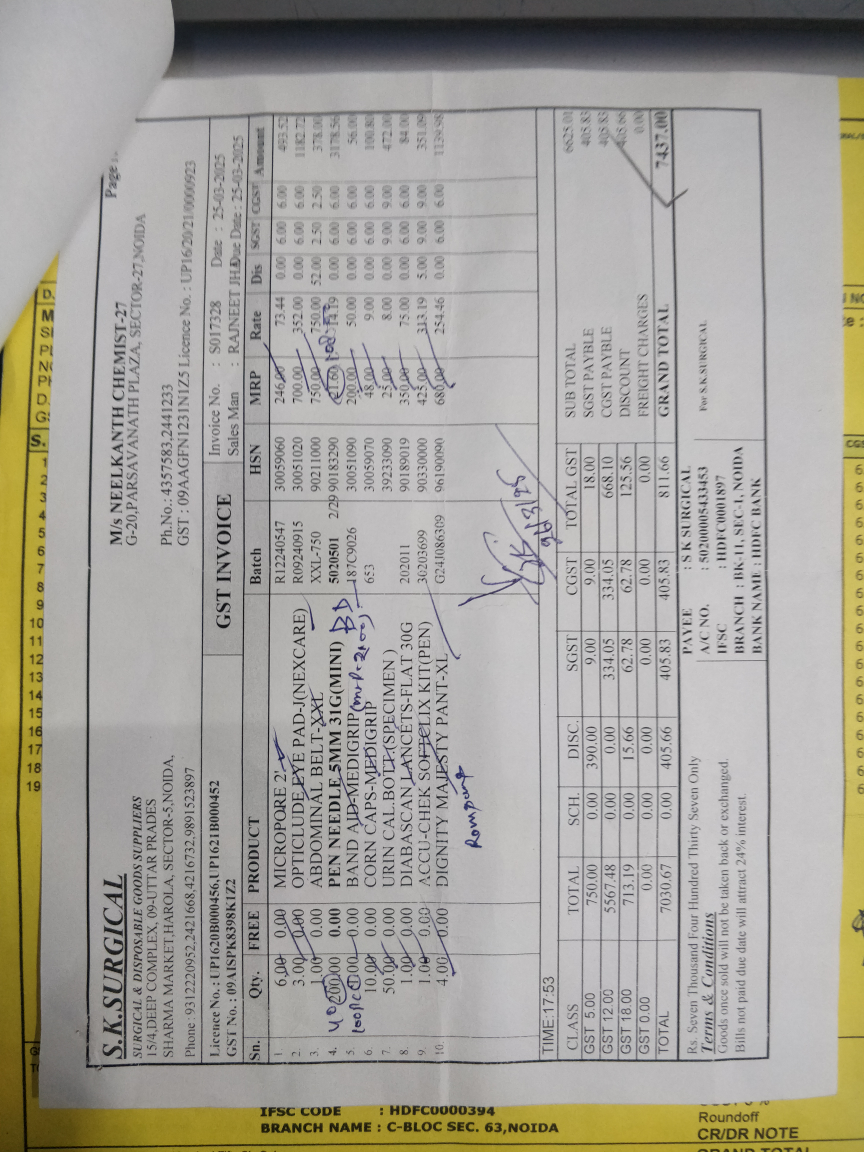 S.K.SURGICAL
SURGICAL & DISPOSABLE GOODS SUPPLIERS
15/4,DEEP COMPLEX, 09-UTTAR PRADES
SHARMA MARKET,HAROLA, SECTOR-5,NOIDA,
Phone: 9312220952,2421668,4216732,9891523897
Licence No. : UP1620B000456,UP1621B000452
GST No. : 09AISPK8398K1Z2
M/s NEELKANTH CHEMIST-27
G-20,PARSAVANATH PLAZA, SECTOR-27,NOIDA
Ph.No.: 4357583,2441233
GST : 09AAGFN1231N1Z5 Licence No. : UP16/20/21/0000923
Page
GST INVOICE
Invoice No. : S017328 Date : 25-03-2025
Sales Man : RAJNEET JHA Due Date : 25-03-2025
Sn. Qty. FREE PRODUCT Batch HSN MRP Rate Dis SGST CGST Amount
1. 6.00 0.00 MICROPORE 2' R12240547 30059060 246.00 73.44 0.00 6.00 6.00 493.52
2. 3.00 0.00 OPTICLUDE EYE PAD-J(NEXCARE) R09240915 30051020 700.00 352.00 0.00 6.00 6.00 1182.72
3. 1.00 0.00 ABDOMINAL BELT-XXL XXL-750 90211000 750.00 750.00 52.00 2.50 2.50 378.00
4. 200.00 0.00 PEN NEEDLE 5MM 31G(MINI) BD 5020501 2/29 90183290 21.60 14.19 0.00 6.00 6.00 3178.56
5. 0.00 BAND AID-MEDIGRIP 187C9026 30051090 200.00 50.00 0.00 6.00 6.00 56.00
6. 10.00 0.00 CORN CAPS-MEDIGRIP 653 30059070 48.00 9.00 0.00 6.00 6.00 100.80
7. 50.00 0.00 URIN CAL.BOTT.(SPECIMEN ) 39233090 25.00 8.00 0.00 9.00 9.00 472.00
8. 1.00 0.00 DIABASCAN LANCETS-FLAT 30G 202011 90189019 350.00 75.00 0.00 6.00 6.00 84.00
9. 1.00 0.00 ACCU-CHEK SOFTCLIX KIT(PEN) 30203699 90330000 425.00 313.19 5.00 9.00 9.00 351.09
10. 4.00 0.00 DIGNITY MAJESTY PANT-XL G24J086309 96190090 680.00 254.46 0.00 6.00 6.00 1139.98
TIME:17:53
CLASS TOTAL SCH. DISC. SGST CGST TOTAL GST
GST 5.00 750.00 0.00 390.00 9.00 9.00 18.00
GST 12.00 5567.48 0.00 0.00 334.05 334.05 668.10
GST 18.00 713.19 0.00 15.66 62.78 62.78 125.56
GST 0.00 0.00 0.00 0.00 0.00 0.00 0.00
TOTAL 7030.67 0.00 405.66 405.83 405.83 811.66
SUB TOTAL 6625.01
SGST PAYBLE 405.83
CGST PAYBLE 405.83
DISCOUNT 405.66
FREIGHT CHARGES 0.00
GRAND TOTAL 7437.00
Rs. Seven Thousand Four Hundred Thirty Seven Only
Terms & Conditions
Goods once sold will not be taken back or exchanged.
Bills not paid due date will attract 24% interest.
PAYEE : S K SURGICAL
A/C NO. : 50200005433453
IFSC : HDFC0001897
BRANCH : BK-11, SEC-1, NOIDA
BANK NAME : HDFC BANK
For S.K.SURGICAL
S.
1
2
3
4
5
6
7
8
9
10
11
12
13
14
15
16
17
18
19
IFSC CODE : HDFC0000394
BRANCH NAME : C-BLOC SEC. 63,NOIDA
Roundoff
CR/DR NOTE
GRAND TOTAL